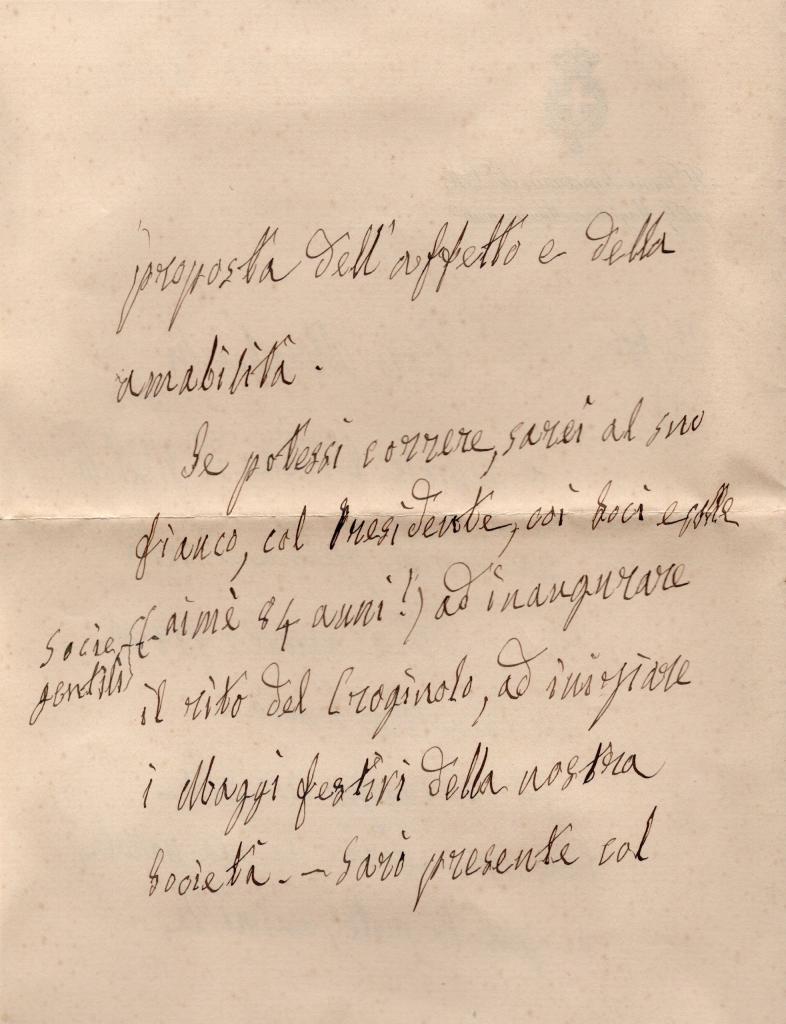 proposta dell'affetto e della
amabilità.
Se potessi correre, sarei al suo
fianco, col Presidente, coi Soci e colle
Socie
gentili
(aimè 84 anni!) ad inaugurare
il rito del Crogiuolo, ad iniziare
i Maggi festivi della nostra
Società. – Sarò presente col